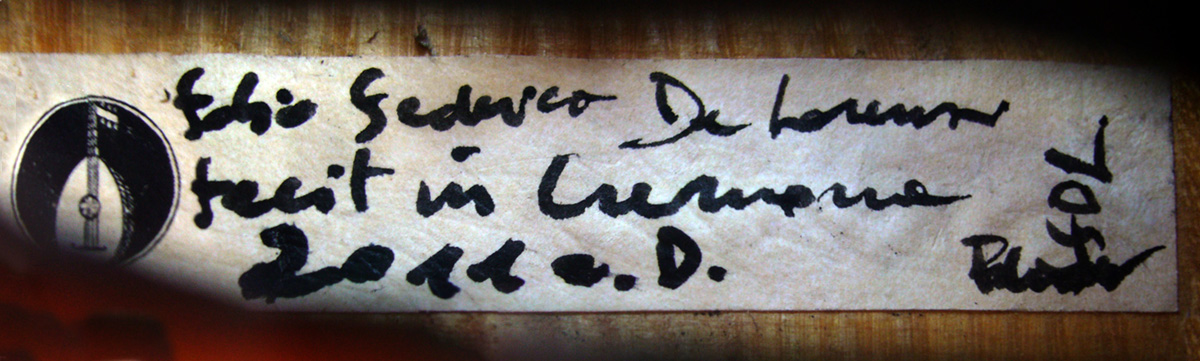 Fabio Federico De Lorenzi
fecit in Cremona
2011 a.D.
FDL